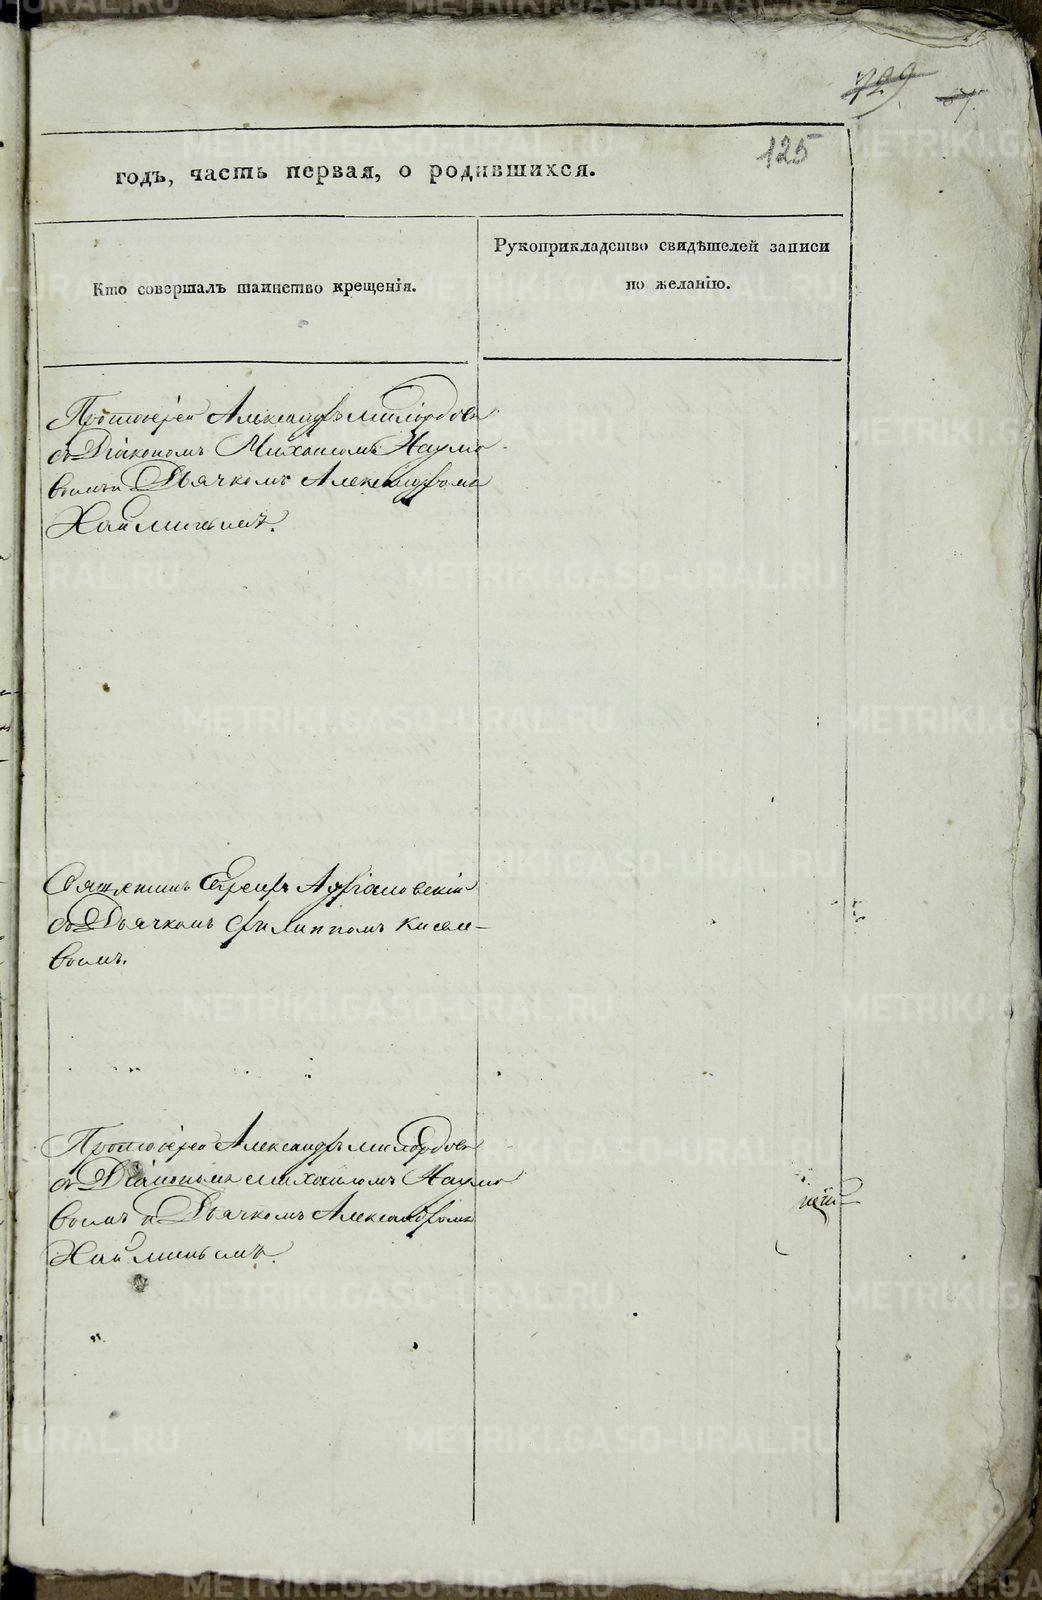 729
125
годъ, часть первая, о родившихся.
Кто совершалъ таинство крещенія.
Рукоприкладство свидѣтелей записи
по желанію.
Протоіерей Александръ Милордовъ
съ Діякономъ Михаиломъ Наумо
вымъ и Дьячкомъ Александромъ
Священникъ
съ Дьячкомъ Филиппомъ Киселе-
вымъ.
Протоіерей Александръ Милордовъ
съ Діякономъ Михаиломъ Наумо
вымъ и Дьячкомъ Александромъ
METRIKI.GASO-URAL.RU